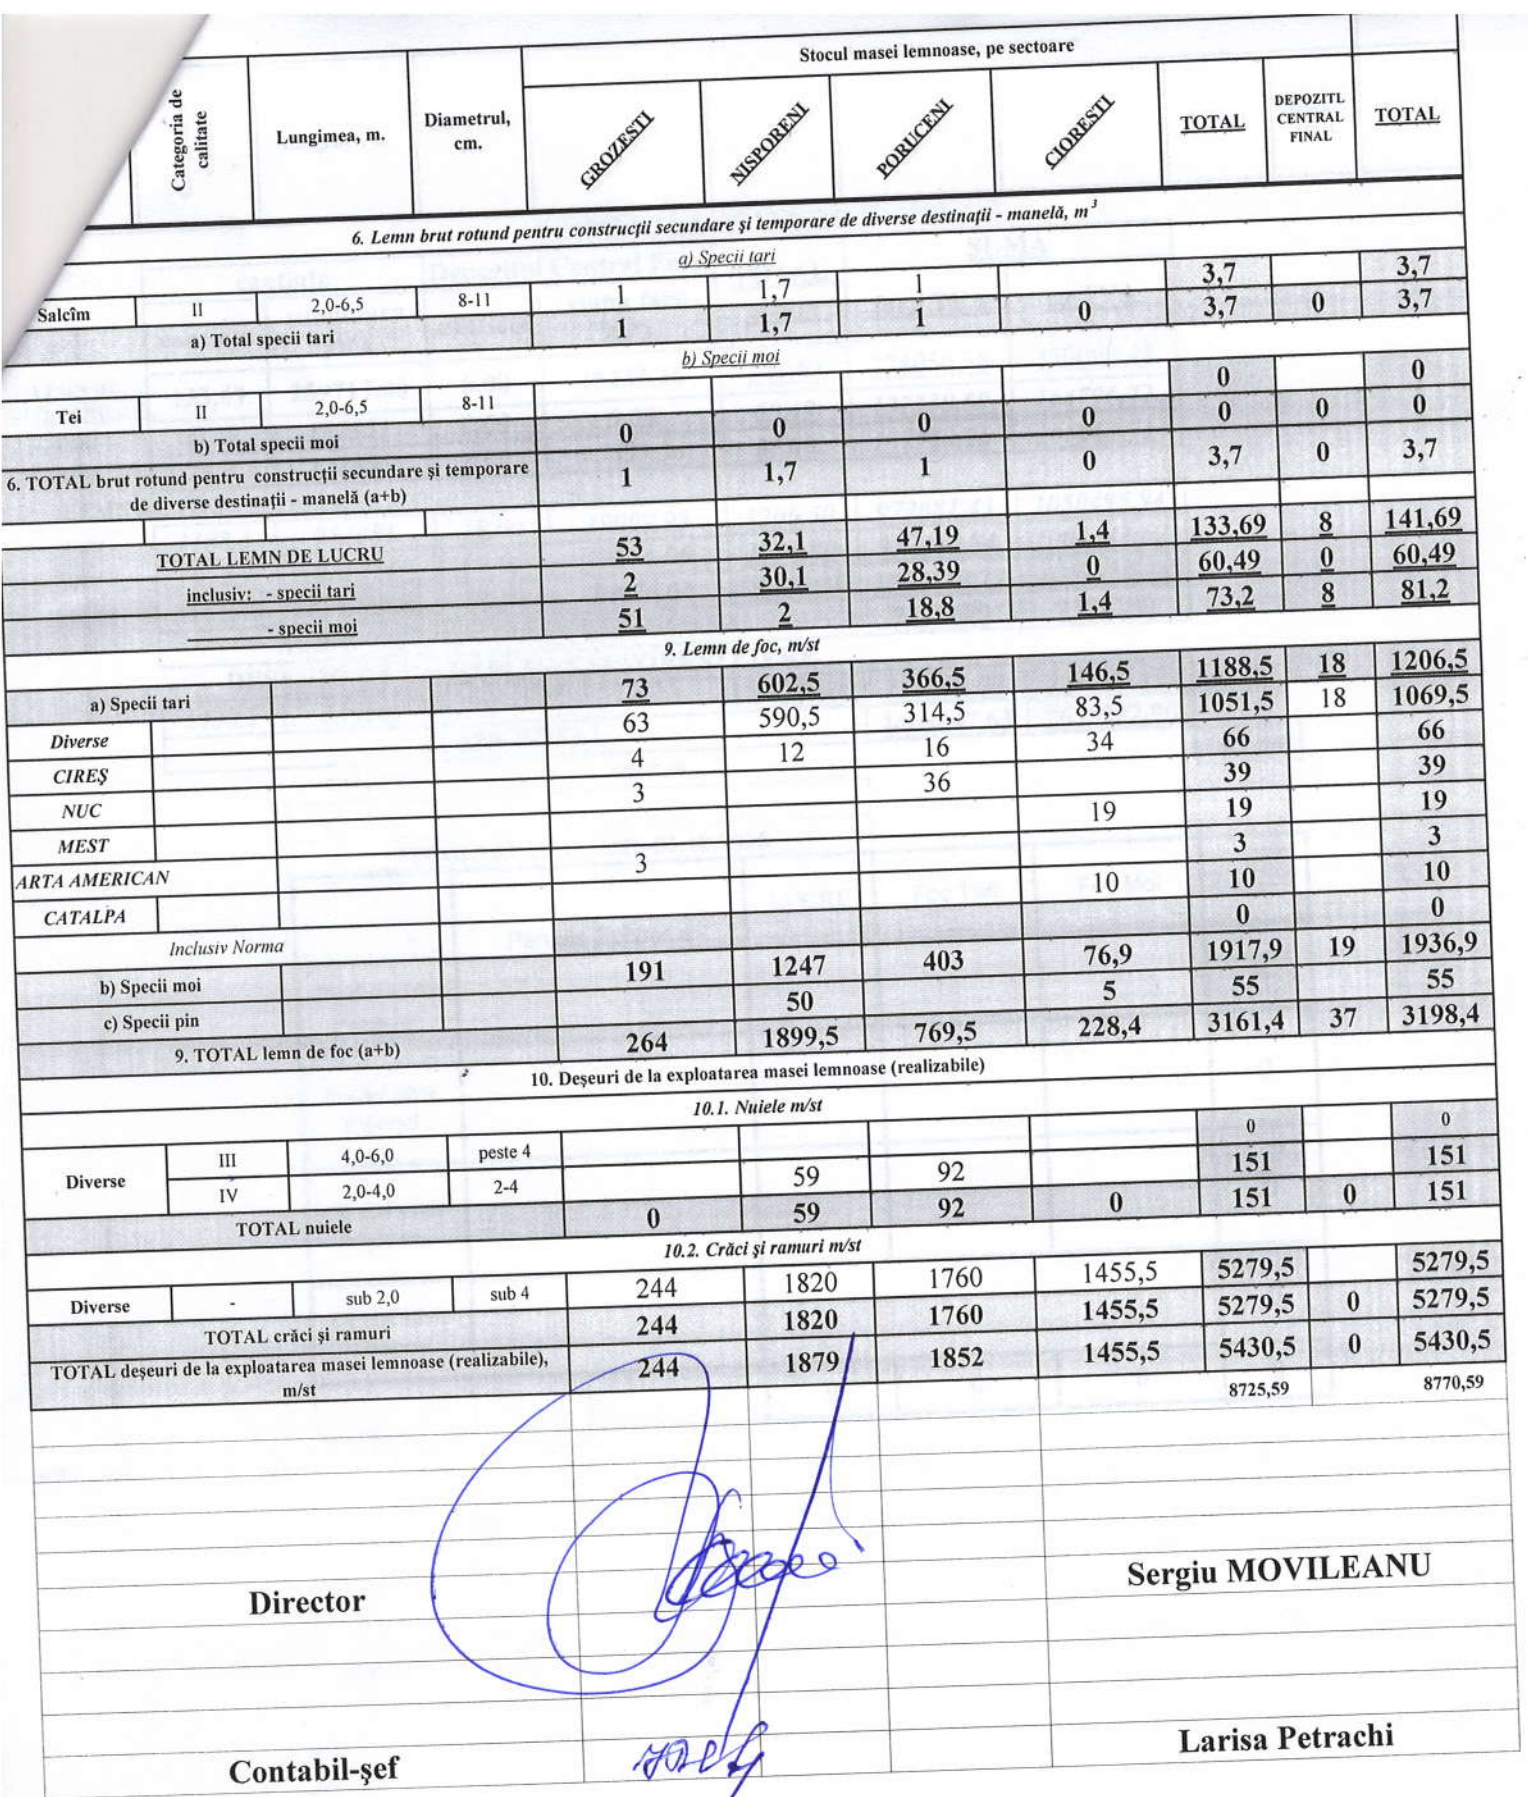 Stocul masei lemnoase, pe sectoare
Categoria de calitate | Lungimea, m. | Diametrul, cm. | GROZESTI | NISPORENI | PORUCENI | CIORESTI | TOTAL | DEPOZITL CENTRAL FINAL | TOTAL
6. Lemn brut rotund pentru construcţii secundare şi temporare de diverse destinaţii - manelă, m³
a) Specii tari
Salcîm | II | 2,0-6,5 | 8-11 | 1 | 1,7 | 1 | 3,7 | 3,7
a) Total specii tari | 1 | 1,7 | 1 | 0 | 3,7 | 0 | 3,7
b) Specii moi
Tei | II | 2,0-6,5 | 8-11 | 0 | 0
b) Total specii moi | 0 | 0 | 0 | 0 | 0 | 0 | 0
6. TOTAL brut rotund pentru construcţii secundare şi temporare
de diverse destinaţii - manelă (a+b) | 1 | 1,7 | 1 | 0 | 3,7 | 0 | 3,7
TOTAL LEMN DE LUCRU | 53 | 32,1 | 47,19 | 1,4 | 133,69 | 8 | 141,69
inclusiv: - specii tari | 2 | 30,1 | 28,39 | 0 | 60,49 | 0 | 60,49
- specii moi | 51 | 2 | 18,8 | 1,4 | 73,2 | 8 | 81,2
9. Lemn de foc, m/st
a) Specii tari | 73 | 602,5 | 366,5 | 146,5 | 1188,5 | 18 | 1206,5
Diverse | 63 | 590,5 | 314,5 | 83,5 | 1051,5 | 18 | 1069,5
CIREŞ | 4 | 12 | 16 | 34 | 66 | 66
NUC | 3 | 36 | 39 | 39
MEST | 19 | 19 | 19
ARTA AMERICAN | 3 | 3 | 3
CATALPA | 10 | 10 | 10
Inclusiv Norma | 0 | 0
b) Specii moi | 191 | 1247 | 403 | 76,9 | 1917,9 | 19 | 1936,9
c) Specii pin | 50 | 5 | 55 | 55
9. TOTAL lemn de foc (a+b) | 264 | 1899,5 | 769,5 | 228,4 | 3161,4 | 37 | 3198,4
10. Deşeuri de la exploatarea masei lemnoase (realizabile)
10.1. Nuiele m/st
Diverse | III | 4,0-6,0 | peste 4 | 0 | 0
IV | 2,0-4,0 | 2-4 | 59 | 92 | 151 | 151
TOTAL nuiele | 0 | 59 | 92 | 0 | 151 | 0 | 151
10.2. Crăci şi ramuri m/st
Diverse | - | sub 2,0 | sub 4 | 244 | 1820 | 1760 | 1455,5 | 5279,5 | 5279,5
TOTAL crăci şi ramuri | 244 | 1820 | 1760 | 1455,5 | 5279,5 | 0 | 5279,5
TOTAL deşeuri de la exploatarea masei lemnoase (realizabile),
m/st | 244 | 1879 | 1852 | 1455,5 | 5430,5 | 0 | 5430,5
8725,59 | 8770,59
Director | Sergiu MOVILEANU
Contabil-şef | Larisa Petrachi